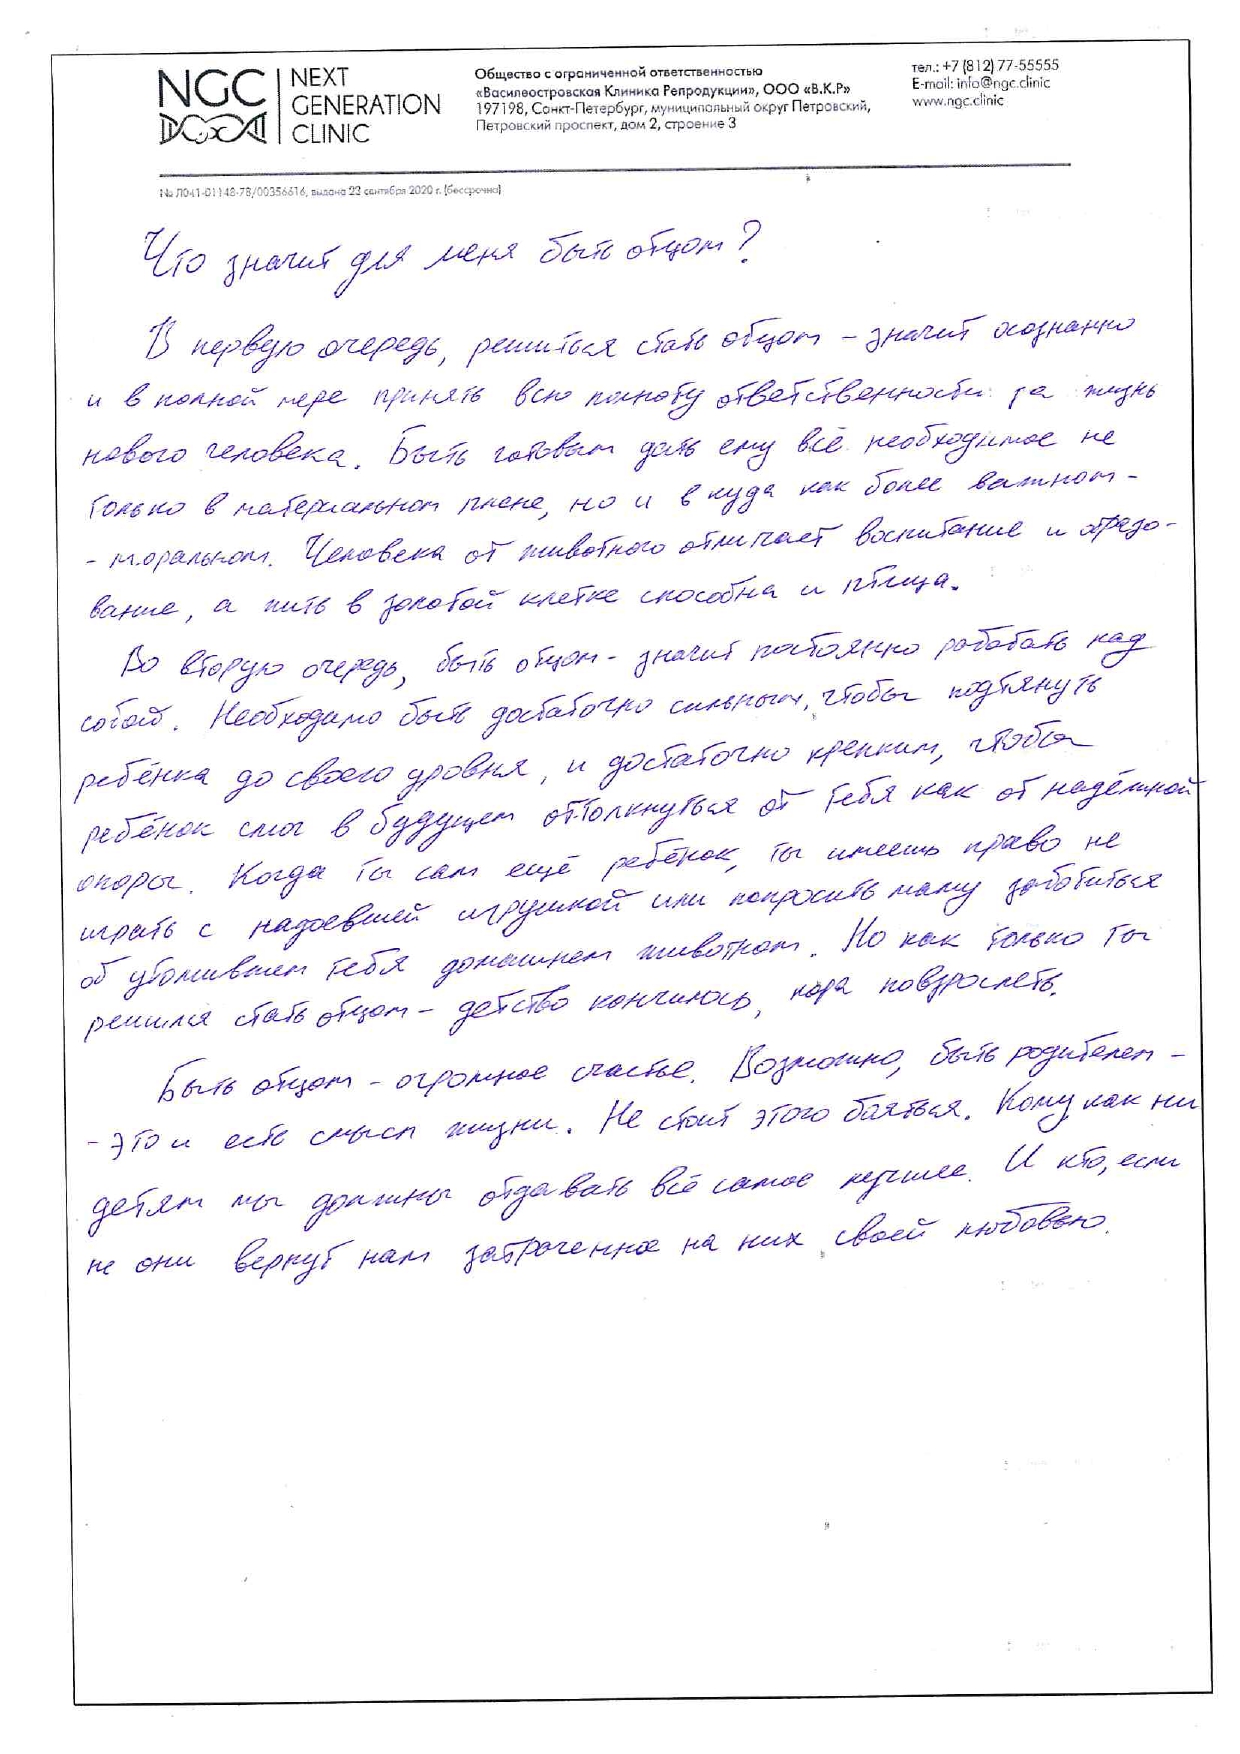 NGC
NEXT
GENERATION
CLINIC
Общество с ограниченной ответственностью
«Василеостровская Клиника Репродукции», ООО «В.К.Р»
197198, Санкт-Петербург, муниципальный округ Петровский,
Петровский проспект, дом 2, строение 3
тел.: +7 (812) 77-55555
E-mail: info@ngc.clinic
www.ngc.clinic
№ Л041-01148-78/00356616, выдана 22 сентября 2020 г. (бессрочно)
Что значит для меня быть отцом?
В первую очередь, решиться стать отцом – значит осознанно
и в полной мере принять всю полноту ответственности за жизнь
нового человека. Быть готовым дать ему всё необходимое не
только в материальном плане, но и в куда как более важном -
- моральном. Человека от животного отличает воспитание и образо-
вание, а жить в золотой клетке способна и птица.
Во вторую очередь, быть отцом - значит постоянно работать над
собой. Необходимо быть достаточно сильным, чтобы подтянуть
ребёнка до своего уровня, и достаточно крепким, чтобы
ребёнок смог в будущем оттолкнуться от тебя как от надёжной
опоры. Когда ты сам ещё ребёнок, ты имеешь право не
играть с надоевшей игрушкой или попросить маму заботиться
об утомившем тебя домашнем животном. Но как только ты
решился стать отцом – детство кончилось, пора повзрослеть.
Быть отцом – огромное счастье. Возможно, быть родителем -
- это и есть смысл жизни. Не стоит этого бояться. Кому как ни
детям мы должны отдавать всё самое лучшее. И кто, если
не они вернут нам затраченное на них своей любовью.